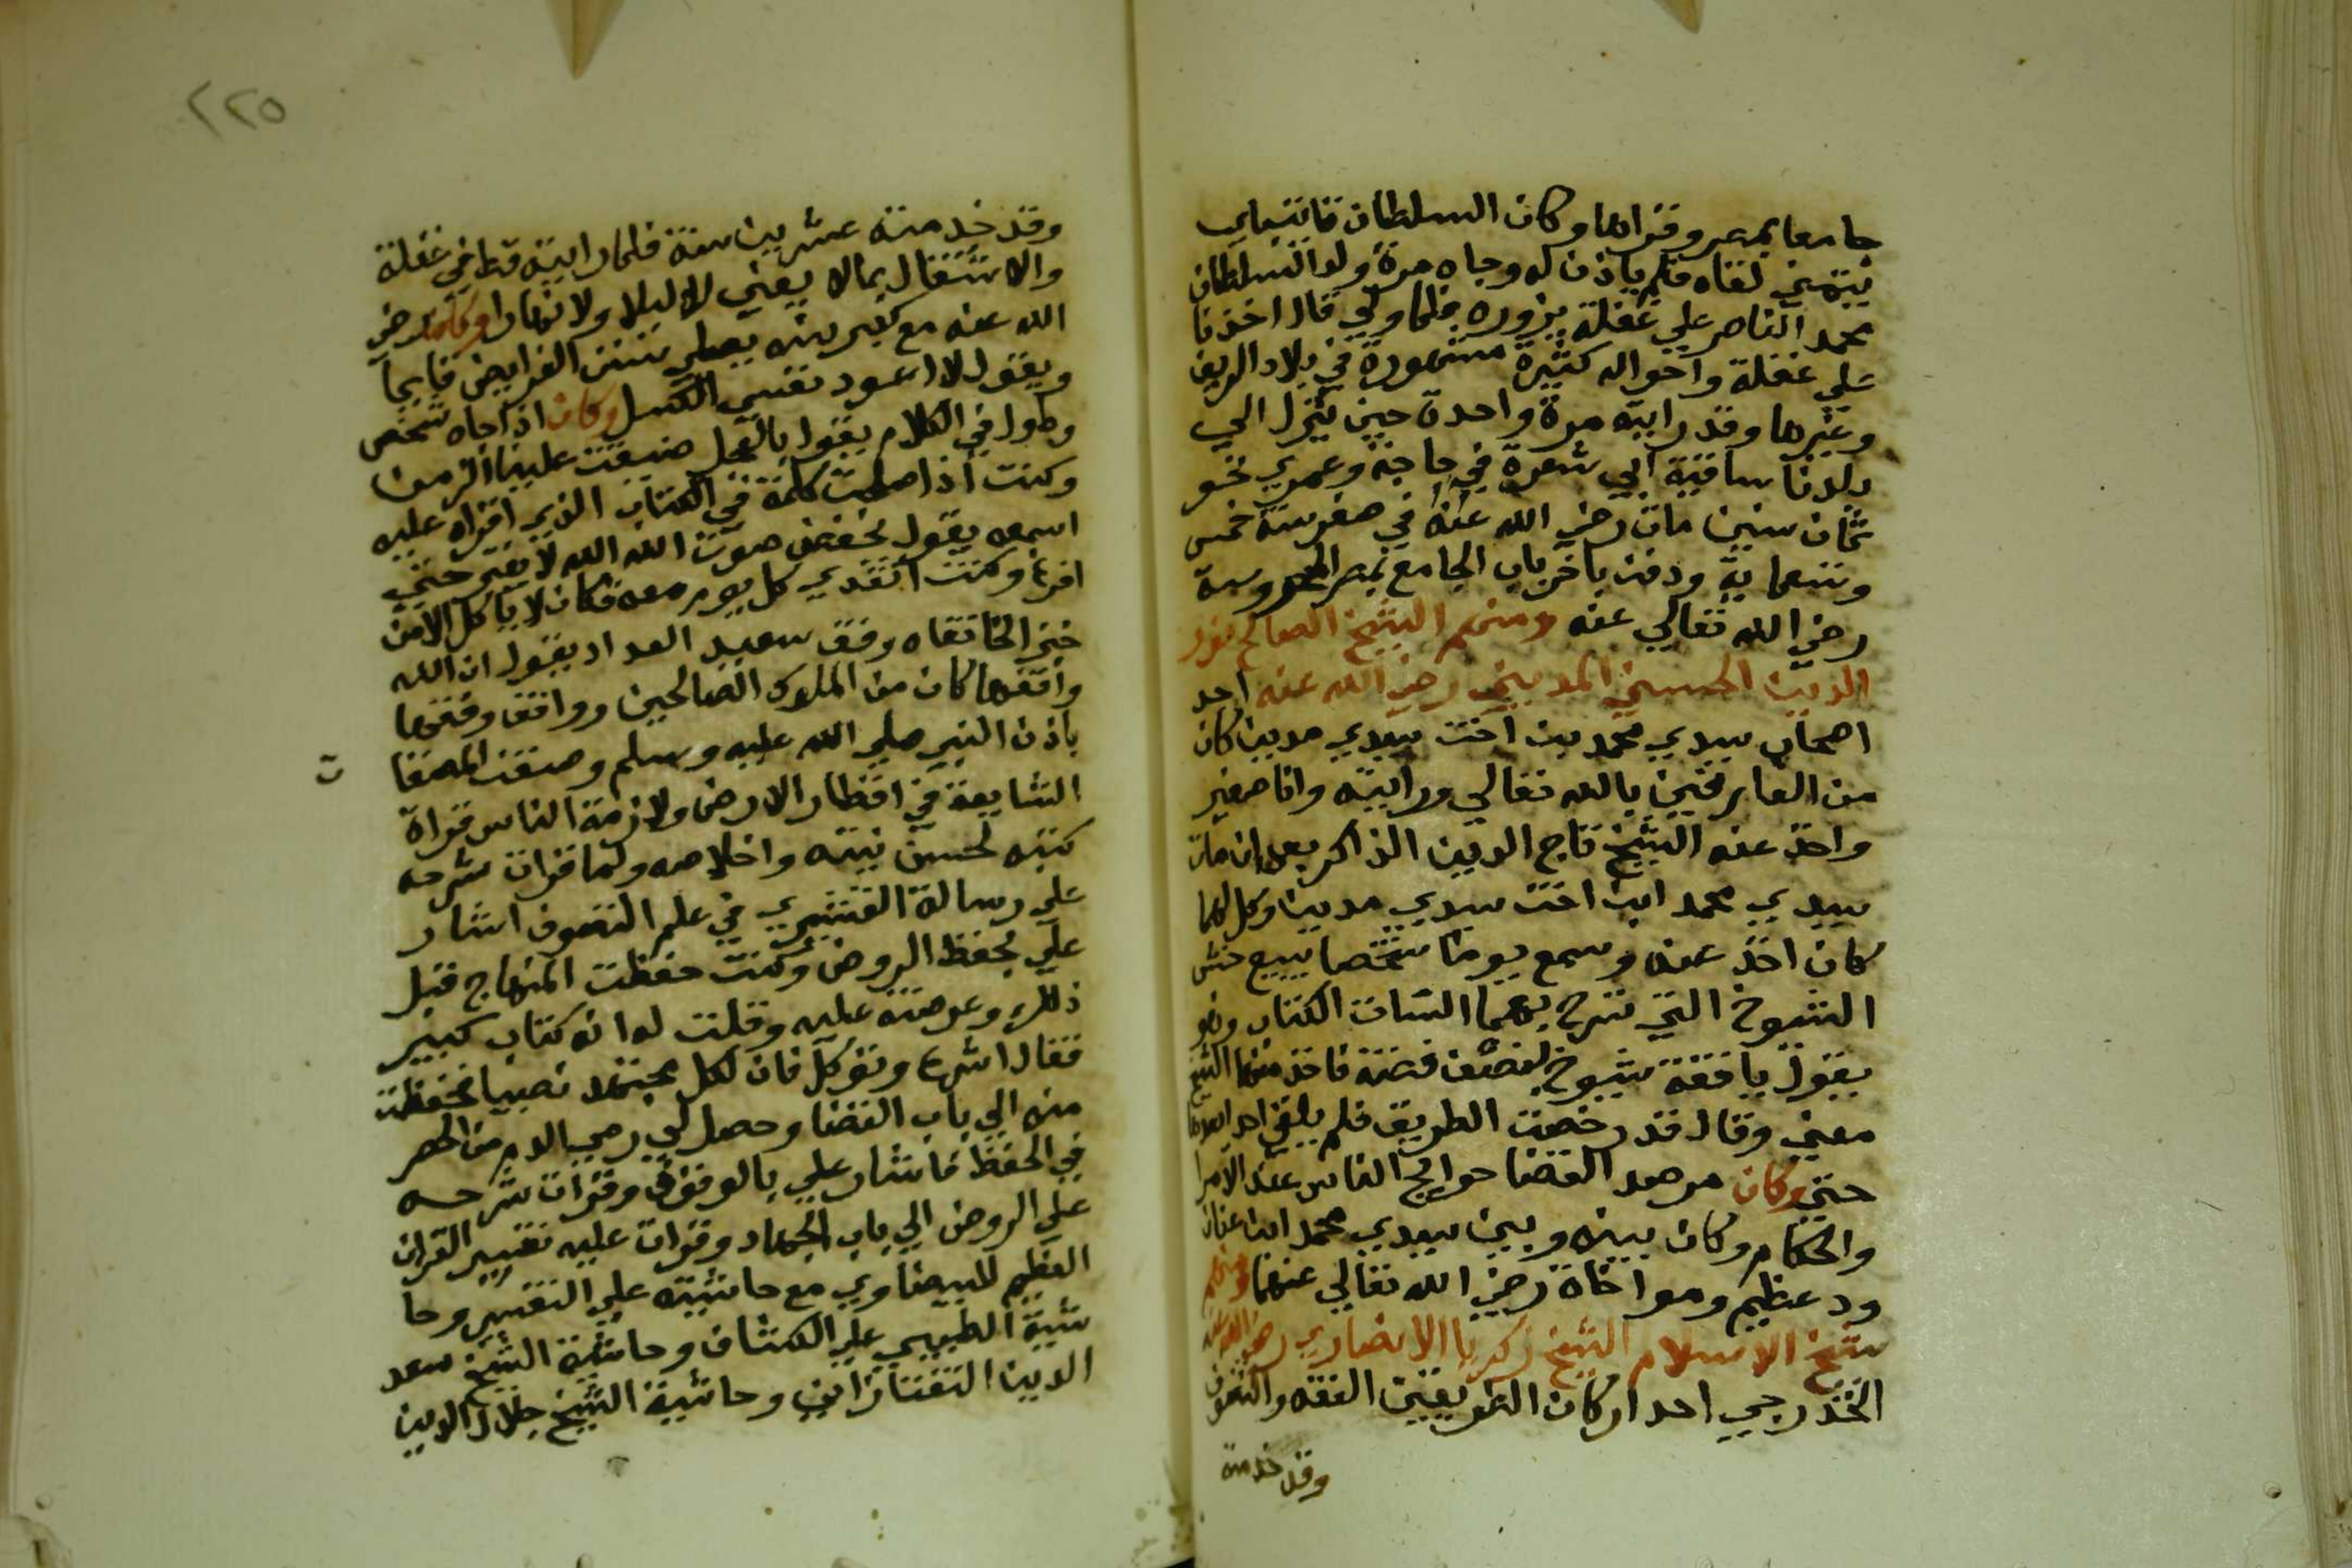 جامعا بمصر وقراها وكان السلطان قايتباي
يتمني لقاه فلم ياذن له وجاه مرة ولد السلطان
محمد الناصر علي غفلة يزوره فلما ولي قال اخذنا
علي غفلة واحواله كثيرة مشهورة في بلاد الريف
وغيرها وقد رايته مرة واحدة حين نزل الي
بلدنا ساقية ابي شعرة في حاجة وعمري نحو
ثمان سنين مات رضي الله عنه في صفر سنة خمس
وتسعماية ودفن باخر باب الجامع بمصر المحروسة
رضي الله تعالي عنه ومنهم الشيخ الصالح نور
الدين الحسني المديني رضي الله عنه احد
اصحاب سيدي محمد بن اخت سيدي مدين كان
من العارفين بالله تعالي ورايته وانا صغير
واخذ عنه الشيخ تاج الدين الذاكر بعد ان مات
سيدي محمد ابن اخت سيدي مدين وكلاهما
كان اخذ عنه وسمع يوما شخصا يبيع خشـ
الشيوخ التي تسرح بهما النسات الكتان وهو
يقول يا قفة شيوخ بنصف فضة فاخذ منها الشيخ
معني وقال قد رخصت الطريق فلم يلقن احد بعدها
حتي وكان مرصد القضا حوايج الناس عند الامرا
والحكام وكان بينه وبين سيدي محمد ابن عنان
ود عظيم ومواخاة رضي الله تعالي عنهما ومنهم
شيخ الاسلام الشيخ زكريا الانصاري رضي الله عنه
الخزرجي احد اركان الطريقين الفقه والتصوف
وقد خدمته
٢٢٥
وقد خدمته عشرين سنة فلما رايته قط في غفلة
والاشتغال بمالا يعني لا ليلا ولا نهارا وكان رضي
الله عنه مع كبر سنه يصلي سنن الفرايض قايما
ويقول لا اعود نفسي الكسل وكان اذا جاه شخص
وطول في الكلام يقول بالعجل ضيعت علينا الزمن
وكنت اذا اصلحت كلمة في الكتاب الذي اقراه عليه
اسمعه يقول بخفض صوت الله الله لا يفتر حتي
افرغ وكنت اتغدي كل يوم معه فكان لا ياكل الا من
خبز الخانقاه وقف سعيد السعدا ويقول ان الله
واقفها كان من الملوك الصالحين وواقف وقفها
باذن النبي صلي الله عليه وسلم وصنف المصنفا
ت
الشايعة في اقطار الارض ولازمة الناس قراة
كتبه لحسن نيته واخلاصه ولما قرات شرحه
علي رسالة القشيري في علم التصوف اشار
علي بحفظ الروض وكنت حفظت المنهاج قبل
ذلك وعرضته عليه وقلت له انه كتاب كبير
فقال اشرع وتوكل فان لكل مجتهد نصيبا فحفظت
منه الي باب القضا وحصل لي رمي الدم من الحصر
في الحفظ فاشار علي بالوقوف وقرات شرحه
علي الروض الي باب الجهاد وقرات عليه تفسير القران
العظيم للبيضاوي مع حاشيته علي التفسير وحا
شية الطيبي علي الكشاف وحاشية الشيخ سعد
الدين التفتازاني وحاشية الشيخ جلال الدين